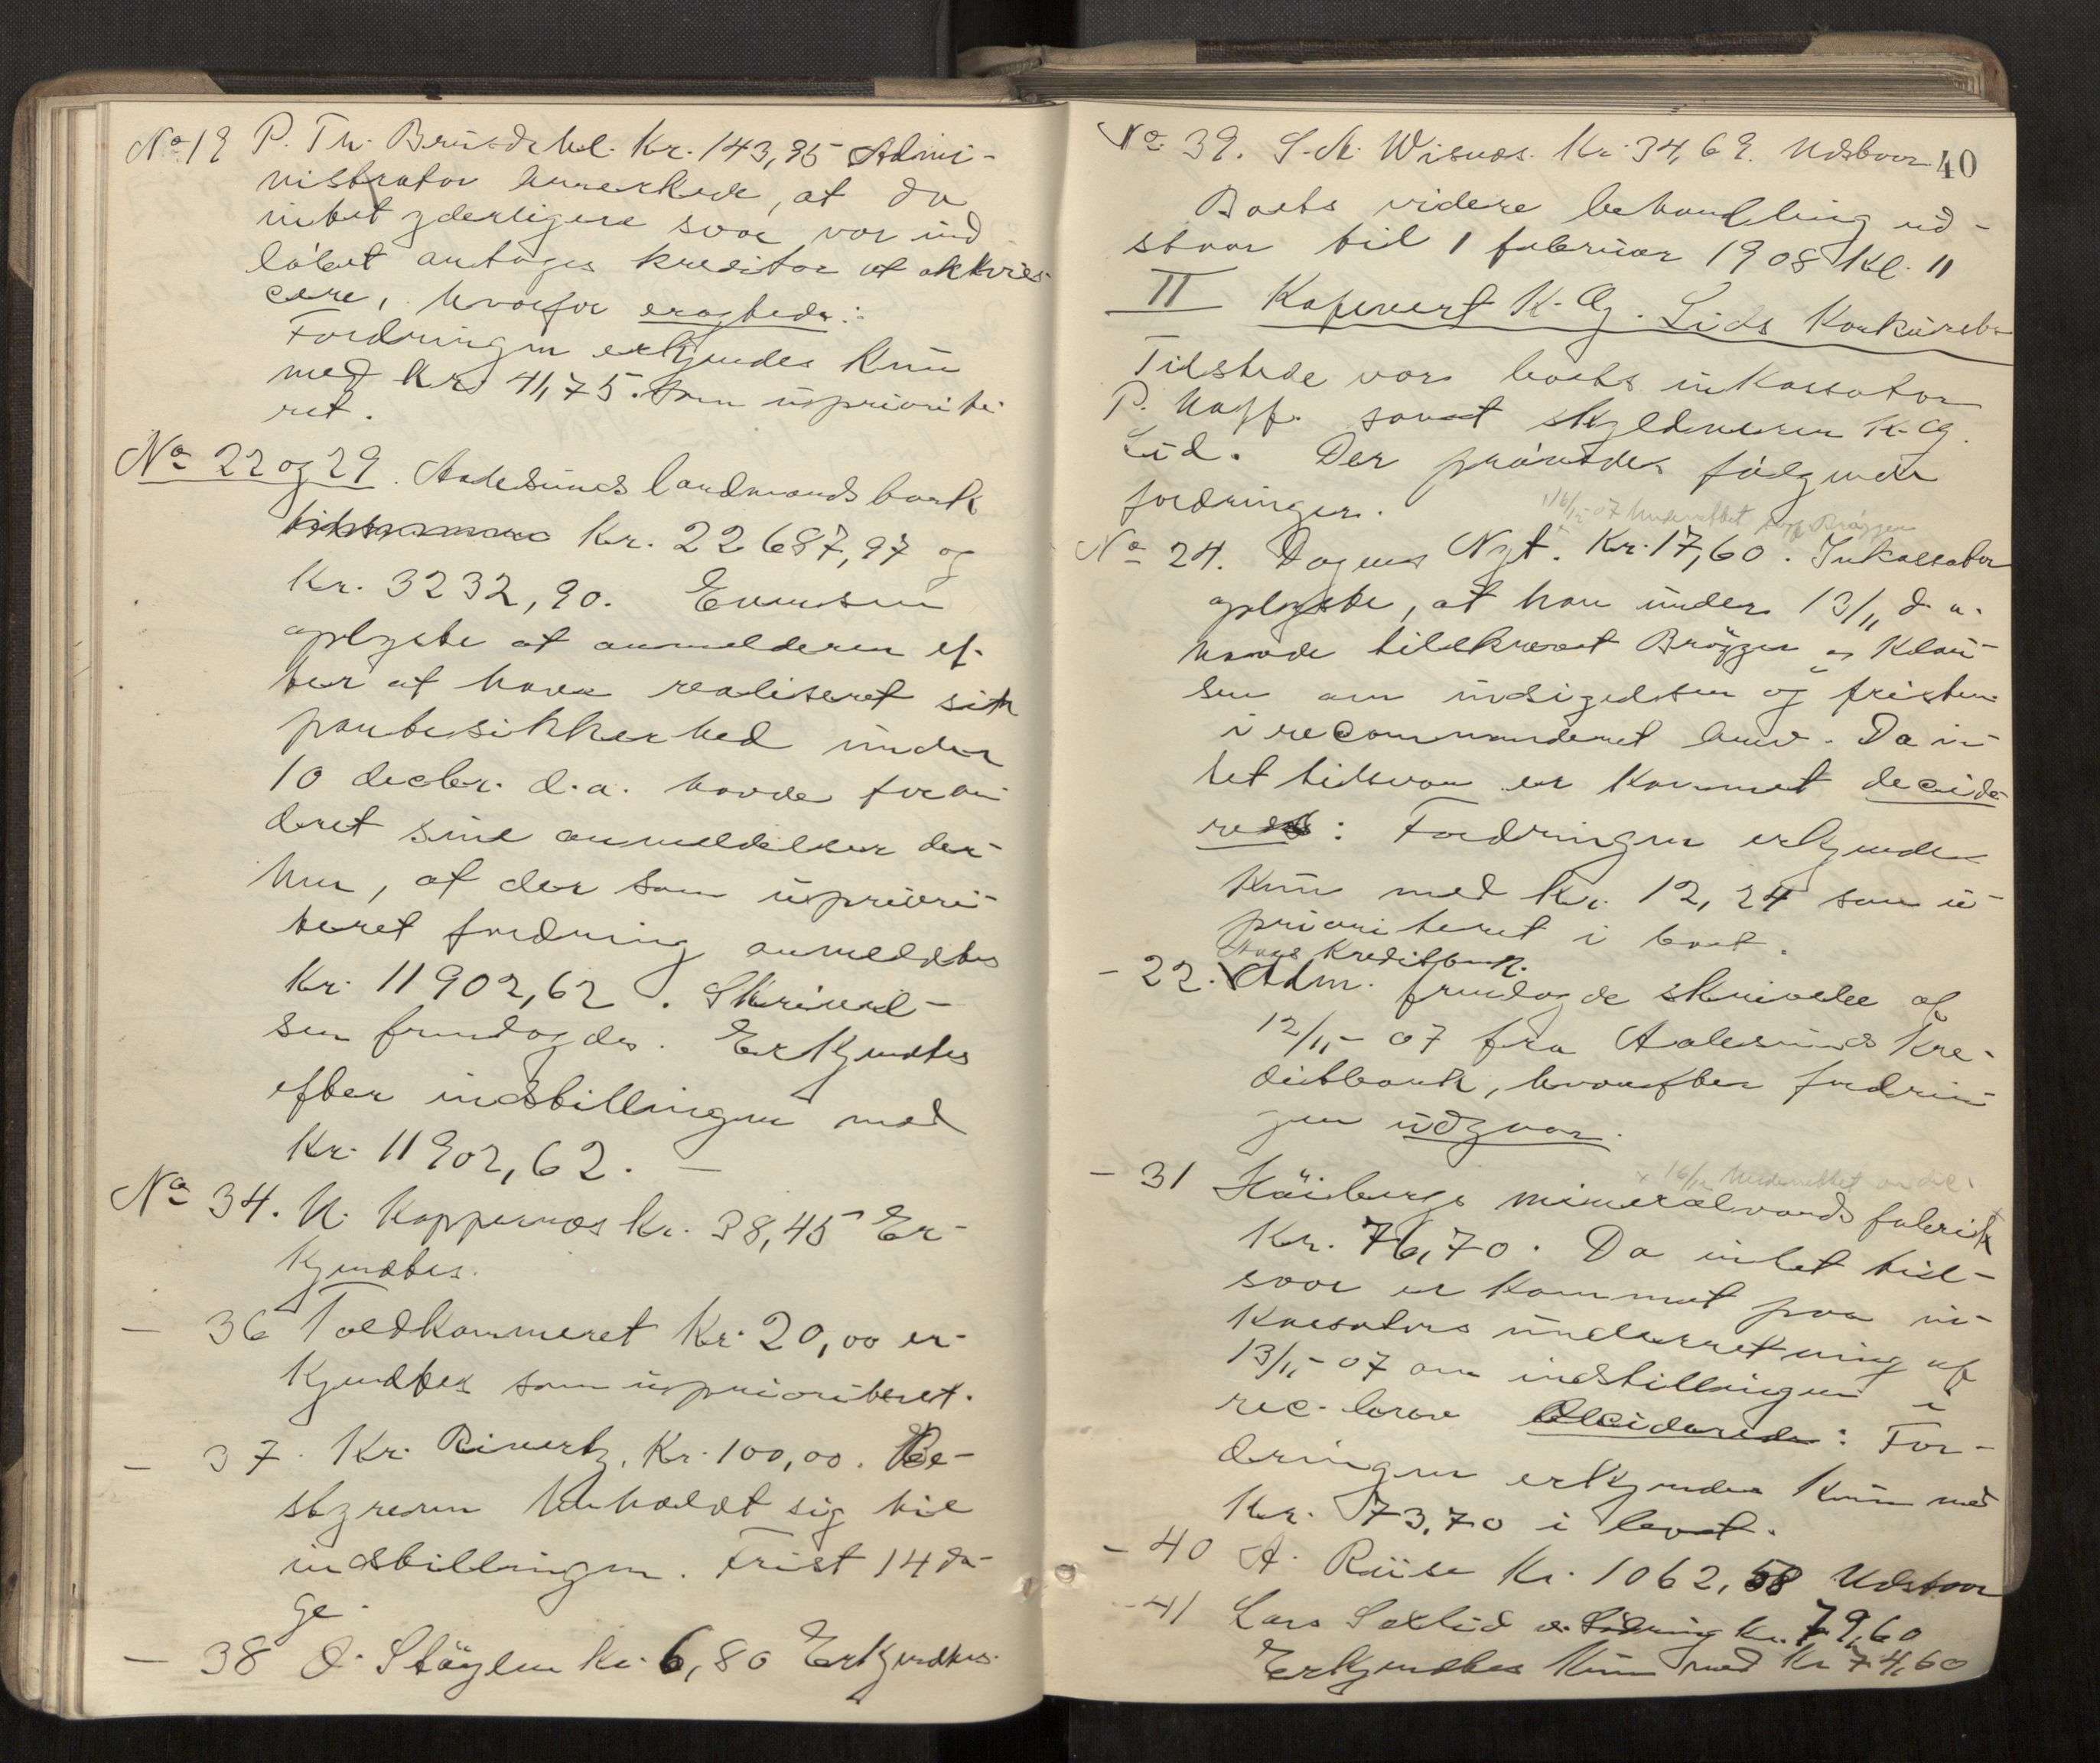 No 19 P. Th. Brusdehl. Kr. 143,95 Admi-
nistrator bemerkede, at da
intet yderligere svar var ind
løbet antages kreditor at akkvies-
cere, hvorfor eragtedes:
Fordringen erkjendes kun
med Kr. 41,75. som uspriorite-
ret.
No 22 og 29. Aalesunds landmandsbank
Kr. 22687,97 og
Kr. 3232,90. Evensen
oplyste at anmelderen ef-
ter at have realiseret sin
pantesikkerhed under
10 decbr. d.a. havde foran
dret sine anmeldelser der-
hen, at der som upriori-
teret fordring anmeldtes
Kr. 11902,62. Skrivel-
sen fremlagdes. Erkjendtes
efter indstillingen med
Kr. 11902,62. —
No 34. N. Koppernæs Kr. 38,45 Er-
kjendtes.
— 36 Toldkammeret Kr. 20,00 er-
kjendtes som uprioriteret.
— 37. Kr. Rivertz. Kr. 100,00. Be-
styreren henholdt sig til
indstillingen. Frist 14 da-
ge.
— 38 O. Støylen kr. 6,80 Erkjendtes.
No 39. S. A. Wisnæs. Kr. 34,69. Udstaar 40
Boets videre behandling ud-
staar til 1 februar 1908 Kl. 11
II K. G. Lids Konkursbo
Tilstede var boets inkassator
P. Hoff. samt skyldneren K. G.
Lid. Der prøvedes følgende
fordringer.
16/12-07 Underrettet Brøgger
No 24. Dagens Nyt. Kr. 17,60. Inkassator
oplyste, at han under 13/11 d. a.
havde tilskrevet Brøgger & Klau-
sen om indsigelsen og fristen
i recommanderet brev. Da in-
tet tilsvar er kommet decide-
redes: Fordringen erkjendes
kun med Kr. 12,24 som u-
prioriteret i boet.
Aaes Kreditbank.
- 22. Adm. fremlagde skrivelse af
12/11-07 fra Aalesunds Kre-
ditbank, hvorefter fordrin-
gen udgaar.
x 16/12 Underrettet
- 31 Høibergs mineralvandsfabrik
Kr. 76,70. Da intet til-
svar er kommet paa in-
kassators underretning af
13/11-07 om indstillingen i
rec. brev decideredes: For-
dringen erkjendes kun med
Kr. 73,70 i boet.
- 40 A. Riise Kr. 1062,58 Udstaar
- 41 Lars Sætlid kr. 79,60
Erkjendtes kun med Kr 74,60